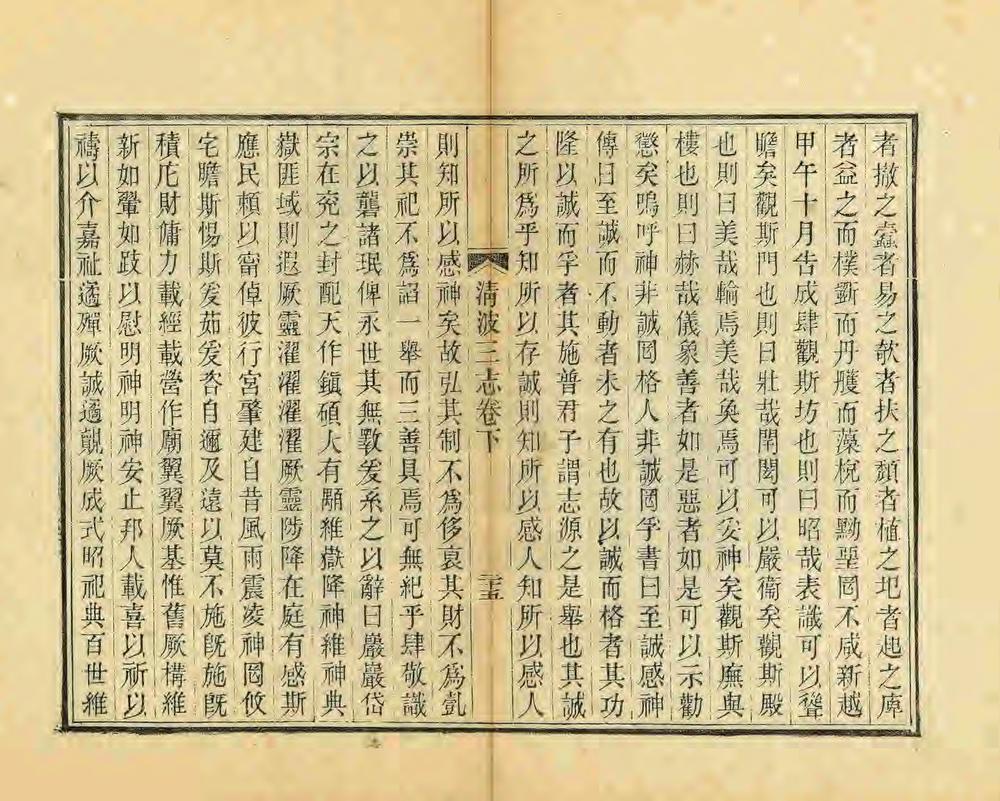 者撤之蠹者易之欹者扶之頹者植之圮者起之庳
者益之而樸斵而丹雘而藻梲而黝堊罔不咸新越
甲午十月告成肆觀斯坊也則曰昭哉表識可以聳
瞻矣觀斯門也則曰壯哉閈閎可以嚴衞矣觀斯殿
也則曰美哉輪焉美哉奐焉可以妥神矣觀斯廡與
樓也則曰赫哉儀象善者如是惡者如是可以示勸
懲矣嗚呼神非誠罔格人非誠罔孚書曰至誠感神
傳曰至誠而不動者未之有也故以誠而格者其功
隆以誠而孚者其施普君子謂志源之是舉也其誠
之所爲乎知所以存誠則知所以感人知所以感人
清波三志卷下
三十五
則知所以感神矣故弘其制不爲侈裒其財不爲㓻
崇其祀不爲諂一舉而三善具焉可無紀乎肆敬識
之以礱諸珉俾永世其無斁爰系之以辭曰巖巖岱
宗在兖之封配天作鎮碩大有顒維嶽降神維神典
嶽匪域則遐厥靈濯濯濯濯厥靈陟降在庭有感斯
應民賴以甯倬彼行宮肇建自昔風雨震凌神罔攸
宅瞻斯惕斯爰茹爰咨自邇及遠以莫不施旣施旣
積庀財傭力載經載營作廟翼翼厥基惟舊厥構維
新如翬如跂以慰明神明神安止邦人載喜以祈以
禱以介嘉祉遹殫厥誠遹觀厥成式昭祀典百世維